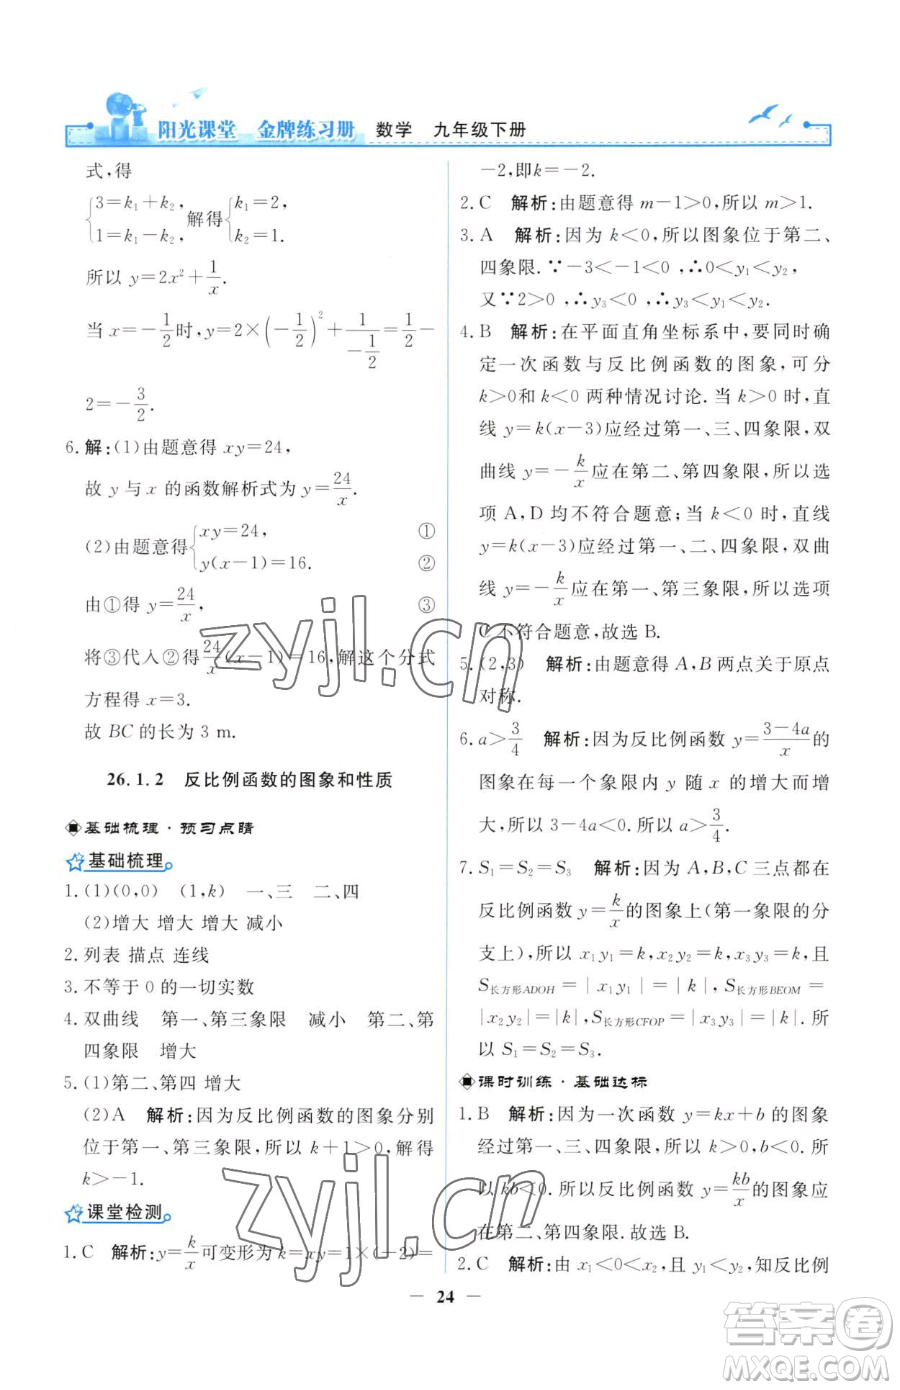 阳光课堂 金牌练习册 数学 九年级下册
式,得
{3=k₁+k₂, 1=k₁-k₂. 解得{k₁=2, k₂=1.
所以 y=2x²+1/x.
当 x=-1/2时,y=2×(-1/2)²+1/(-1/2)=1/2-
2=-3/2.
6.解:(1)由题意得 xy=24,
故 y 与 x 的函数解析式为 y=24/x.
(2)由题意得{xy=24, ① y(x-1)=16. ②
由①得 y=24/x, ③
将③代入②得24/x(x-1)=16,解这个分式
方程得 x=3.
故 BC 的长为 3 m.
26.1.2 反比例函数的图象和性质
基础梳理·预习点睛
基础梳理
1.(1)(0,0) (1,k) 一、三 二、四
(2)增大 增大 增大 减小
2.列表 描点 连线
3.不等于 0 的一切实数
4.双曲线 第一、第三象限 减小 第二、第
四象限 增大
5.(1)第二、第四 增大
(2)A 解析:因为反比例函数的图象分别
位于第一、第三象限,所以 k+1>0,解得
k>-1.
课堂检测
1.C 解析:y=k/x可变形为 k=xy=1×(-2)=
-2,即k=-2.
2.C 解析:由题意得 m-1>0,所以 m>1.
3.A 解析:因为 k<0,所以图象位于第二、
四象限.∵-3<-1<0 ,∴0<y₁<y₂,
又∵2>0,∴y₃<0 ,∴y₃<y₁<y₂.
4.B 解析:在平面直角坐标系中,要同时确
定一次函数与反比例函数的图象,可分
k>0和 k<0 两种情况讨论.当 k>0 时,直
线 y=k(x-3)应经过第一、三、四象限,双
曲线 y=-k/x应在第二、第四象限,所以选
项 A,D 均不符合题意;当 k<0 时,直线
y=k(x-3)应经过第一、二、四象限,双曲
线 y=-k/x应在第一、第三象限,所以选项
C 不符合题意,故选 B.
5.(2,3) 解析:由题意得 A,B 两点关于原点
对称.
6.a>3/4 解析:因为反比例函数 y=(3-4a)/x的
图象在每个象限内 y 随 x 的增大而增
大,所以 3-4a<0.所以 a>3/4.
7.S₁=S₂=S₃ 解析:因为 A,B,C 三点都在
反比例函数 y=k/x的图象上(第一象限的分
支上),所以 x₁y₁=k,x₂y₂=k,x₃y₃=k,且
S长方形ADOH=|x₁y₁|=|k|,S长方形BEOM=
|x₂y₂|=|k|,S长方形CFOP=|x₃y₃|=|k|.所
以 S₁=S₂=S₃.
课时训练·基础达标
1.B 解析:因为一次函数 y=kx+b 的图象
经过第一、三、四象限,所以 k>0,b<0.所
以 kb<0.所以反比例函数 y=kb/x的图象应
在第二、第四象限.故选 B.
2.C 解析:由 x₁<0<x₂,且 y₁<y₂,知反比例
24
zyjl.cn
zyjl.cn
答案圈
MXQE.COM